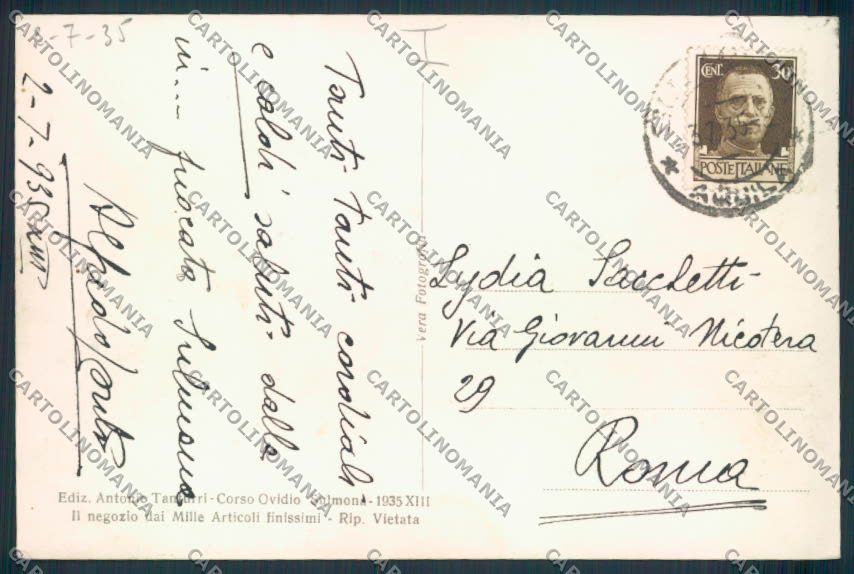 2-7-35
I
Tanti tanti cordiali
e caldi saluti dalla
in.... fuocata Sulmona
2-7-935 XIII
Vera Fotografia
CENT. 30
POSTE ITALIANE
AQUILA
Lydia Sacchetti
Via Giovanni Nicotera
29
Roma
Ediz. Antonio - Corso Ovidio Sulmona - 1935 XIII
Il negozio dai Mille Articoli finissimi - Rip. Vietata
CARTOLINOMANIA